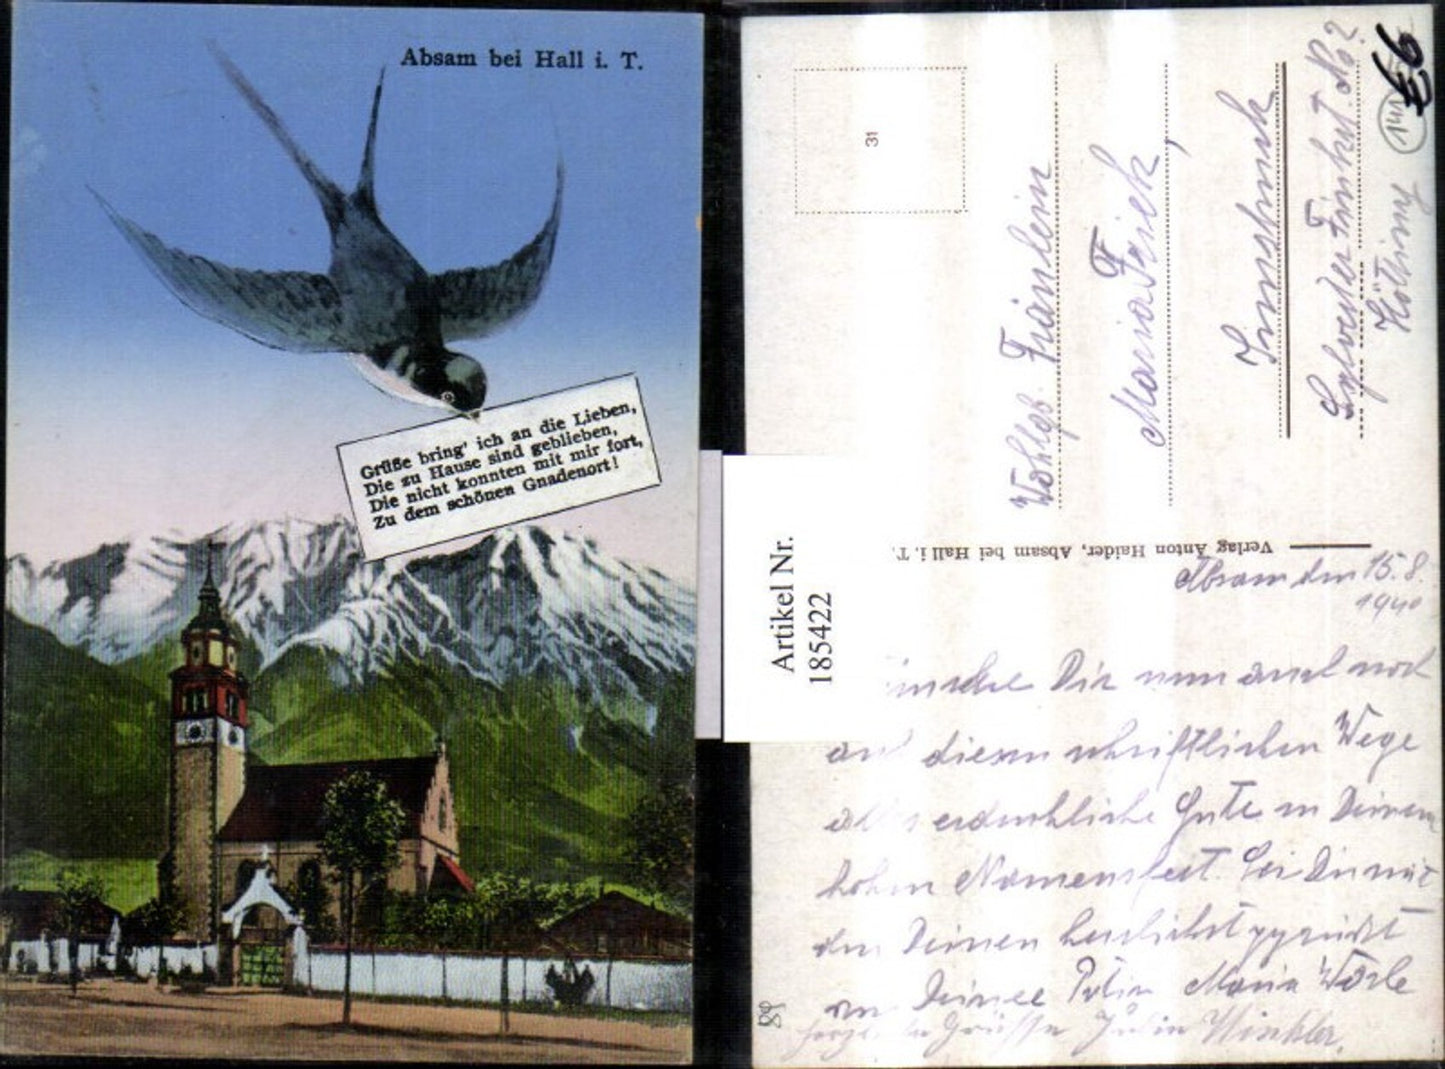 Absam bei Hall i. T.
Grüße bring' ich an die Lieben,
Die zu Hause sind geblieben,
Die nicht konnten mit mir fort,
Zu dem schönen Gnadenort!
31
Wohlgb. Fräulein
Maria
Innsbruck
No 2
Hötting
141
Verlag Anton Haider, Absam bei Hall i. T.
Absam den 15.8.
1940
Artikel Nr.
185422
Dir nun auch noch
auf diesem schriftlichen Wege
erdenkliche Gute zu Deinem
hohen Namensfest. Sei Du mit
den Deinen herzlichst gegrüßt
von Deiner Maria
Grüsse Winkler.
89